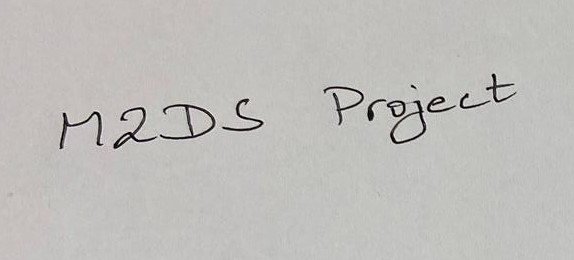 M2DS Project